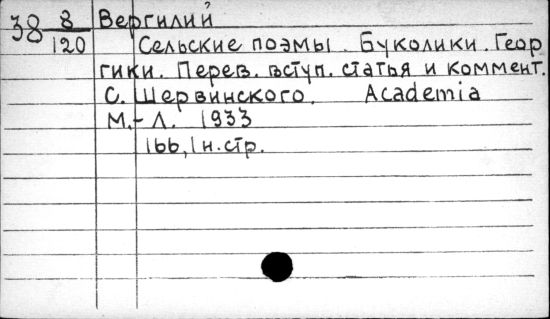 38 8/120 Вергилий
Сельские поэмы. Буколики. Геор
гики. Перев. вступ. статья и коммент.
С. Шервинского. Academia
М.-Л. 1933
166, 1 н. стр.